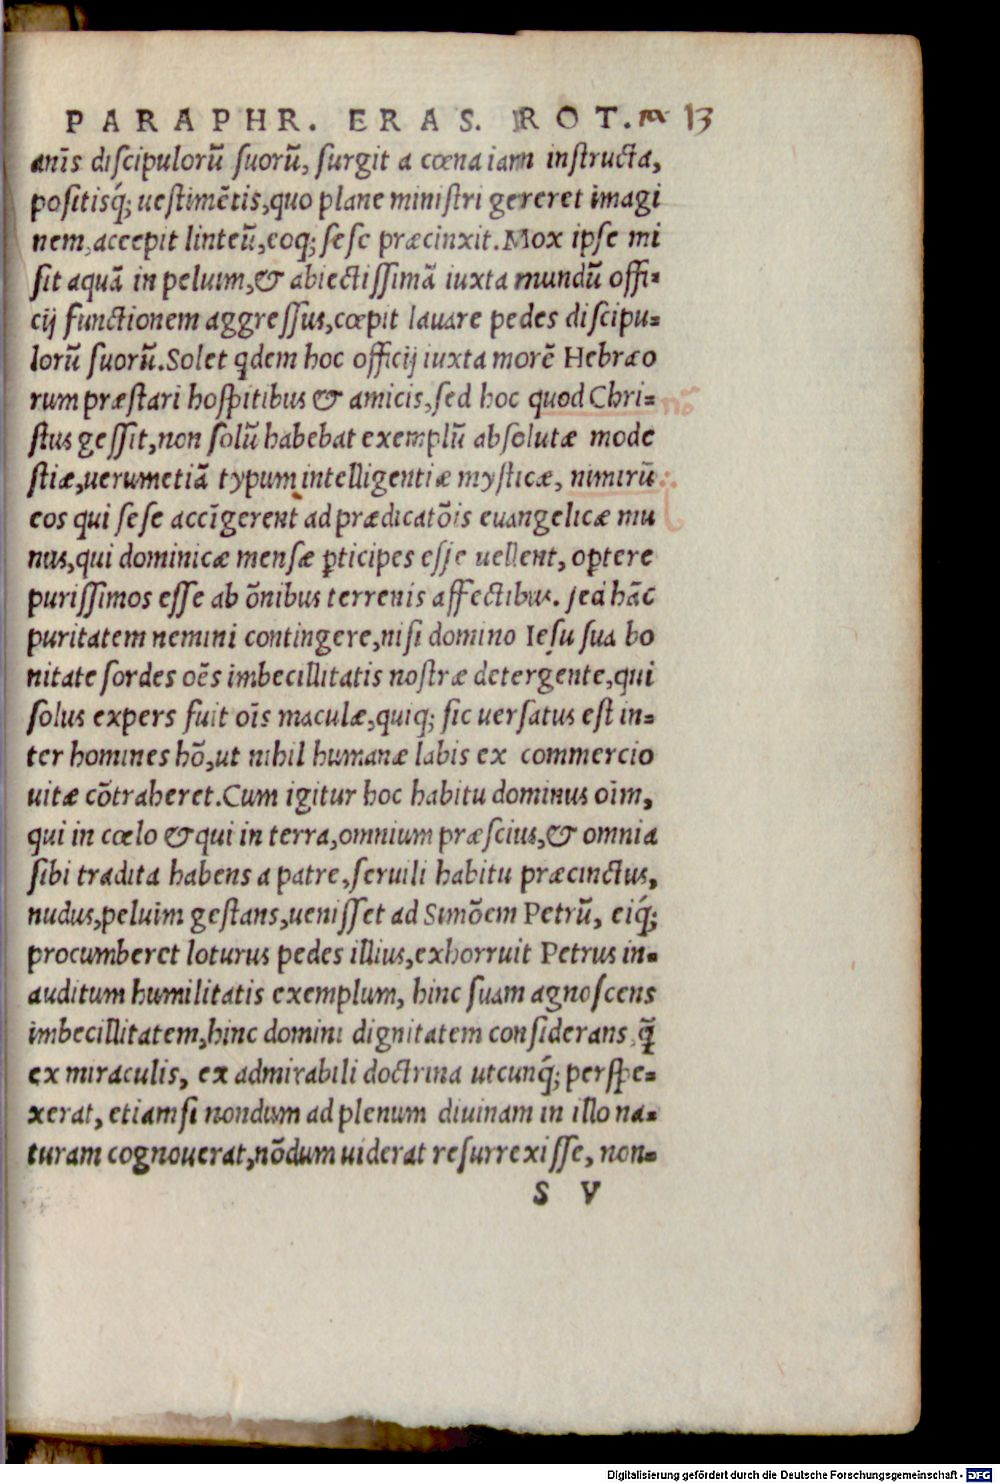 PARAPHR. ERAS. ROT. 13
anīs discipulorū suorū, surgit a cœna iam instructa,
positisq́; uestimētis, quo plane ministri gereret imagi
nem, accepit linteū, eoq; sese præcinxit. Mox ipse mi
sit aquā in peluim, & abiectissimā iuxta mundū offi-
cij functionem aggressus, cœpit lauare pedes discipu-
lorū suorū. Solet qdem hoc officij iuxta morē Hebræo
rum præstari hospitibus & amicis, sed hoc quod Chri-
stus gessit, non solū habebat exemplū absolutæ mode
stiæ, uerumetiā typum intelligentiæ mysticæ, nimirū
eos qui sese accīgerent ad prædicatōis euangelicæ mu
nus, qui dominicæ mensæ ꝑticipes esse uellent, oꝑtere
purissimos esse ab ōnibus terrenis affectibus. sed hāc
puritatem nemini contingere, nisi domino Iesu sua bo
nitate sordes oēs imbecillitatis nostræ detergente, qui
solus expers fuit oīs maculæ, quiq; sic uersatus est in-
ter homines hō, ut nihil humanæ labis ex commercio
uitæ cōtraheret. Cum igitur hoc habitu dominus oīm,
qui in cœlo & qui in terra, omnium præscius, & omnia
sibi tradita habens a patre, seruili habitu præcinctus,
nudus, peluim gestans, uenisset ad Simōem Petrū, eiq́;
procumberet loturus pedes illius, exhorruit Petrus in-
auditum humilitatis exemplum, hinc suam agnoscens
imbecillitatem, hinc domini dignitatem considerans, q̄
ex miraculis, ex admirabili doctrina utcunq́; perspe-
xerat, etiamsi nondum ad plenum diuinam in illo na-
turam cognouerat, nōdum uiderat resurrexisse, non-
S V
nō
Digitalisierung gefördert durch die Deutsche Forschungsgemeinschaft - DFG